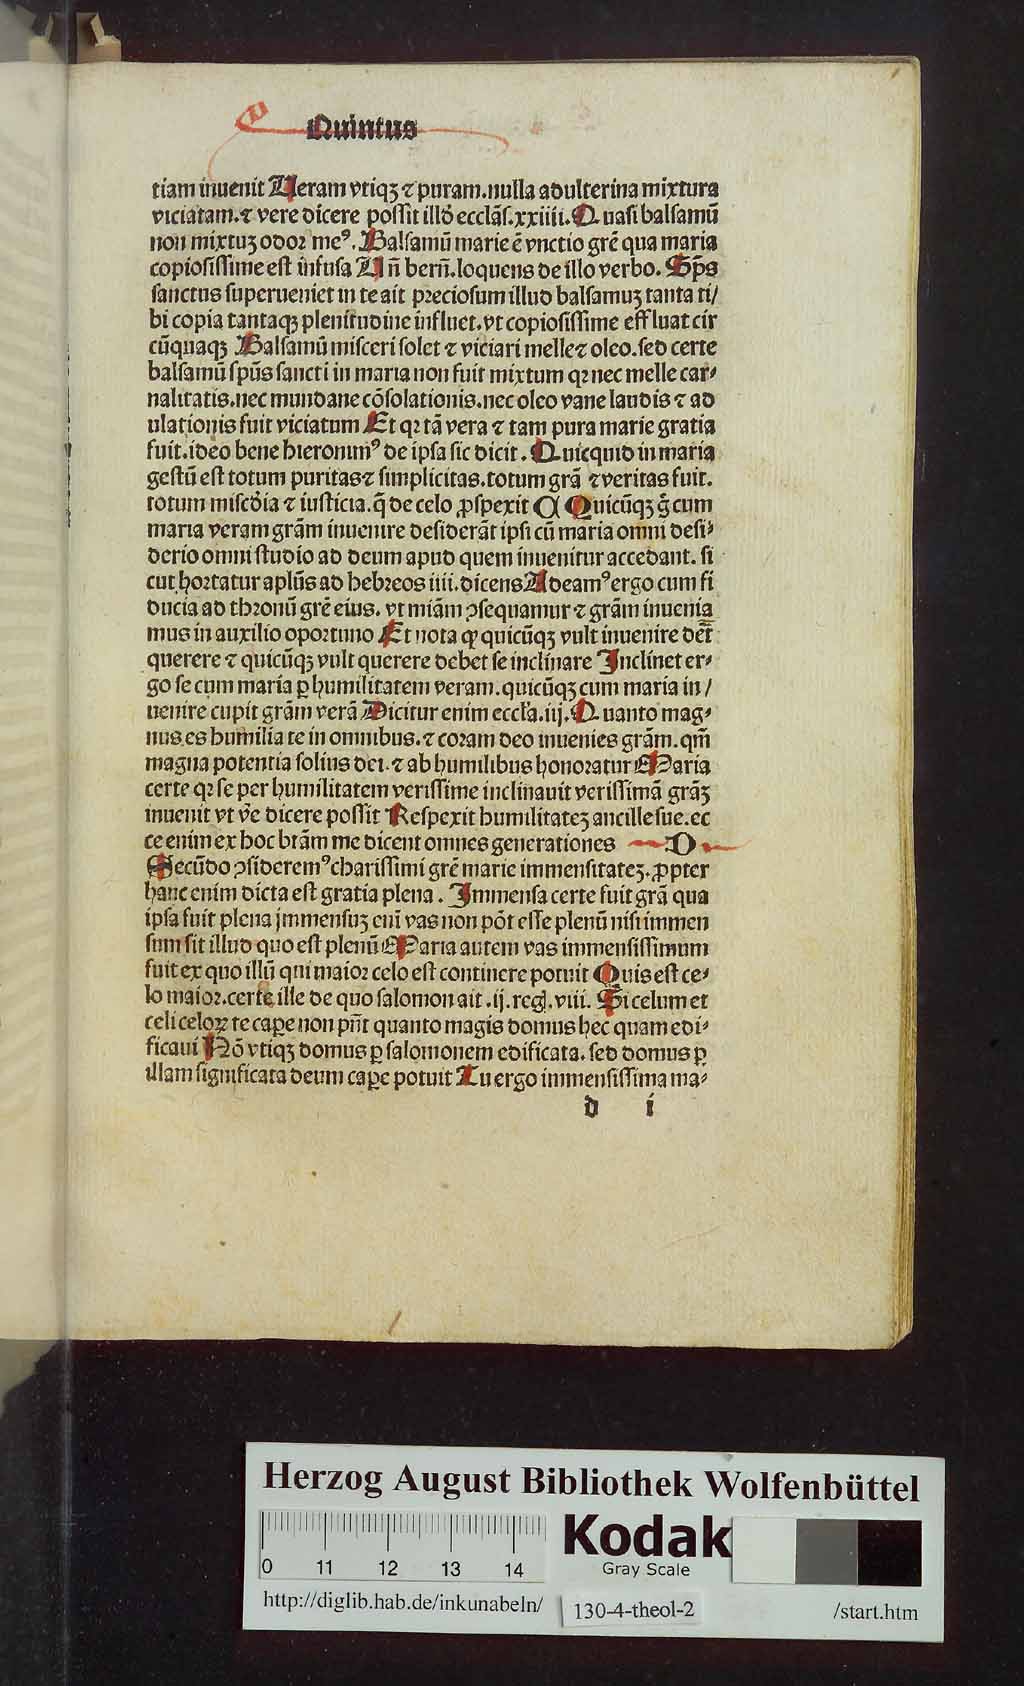 Quintus
tiam inuenit Ueram vtiqꝫ ⁊ puram.nulla adulterina mixtura
viciatam.⁊ vere dicere possit illđ ecclāſ.xxiiii.Quasi balsamū
non mixtuꝫ odor meꝰ.Balsamū marie ē vnctio grē qua maria
copiosissime est infusa Un̄ bern̄.loquens de illo verbo.Spūs
sanctus superueniet in te ait preciosum illud balsamuꝫ tanta ti/
bi copia tantaqꝫ plenitudine influet.vt copiosissime effluat cir
cūquaqꝫ Balsamū misceri solet ⁊ viciari melle⁊ oleo.sed certe
balsamū spūs sancti in maria non fuit mixtum qꝛ nec melle car-
nalitatis.nec mundane cōsolationis.nec oleo vane laudis ⁊ ad
ulationis fuit viciatum Et qꝛ tā vera ⁊ tam pura marie gratia
fuit.ideo bene hieronimꝰ de ipsa sic dicit.Quicquid in maria
gestū est totum puritas⁊ simplicitas.totum grā ⁊ veritas fuit.
totum miscđia ⁊ iusticia.q̄ de celo ꝓspexit ¶ Quicūqꝫ g̊ cum
maria veram grām inuenire desiderāt ipsi cū maria omni desi-
derio omni studio ad deum apud quem inuenitur accedant.si
cut hortatur aplūs ad hebreos iiii.dicens Adeamꝰ ergo cum fi
ducia ad thronū grē eius.vt miām ꝯsequamur ⁊ grām inuenia
mus in auxilio oportuno Et nota ꝙ quicūqꝫ vult inuenire det̄
querere ⁊ quicūqꝫ vult querere debet se inclinare Inclinet er-
go se cum maria ꝑ humilitatem veram.quicūqꝫ cum maria in/
uenire cupit grām verā Dicitur enim eccłᷓa.iij.Quanto mag-
nus es humilia te in omnibus.⁊ coram deo inuenies grām.qm̄
magna potentia solius dei.⁊ ab humilibus honoratur Maria
certe qꝛ se per humilitatem verissime inclinauit verissimā grāꝫ
inuenit vt v̄e dicere possit Respexit humilitateꝫ ancille sue.ec
ce enim ex hoc btām me dicent omnes generationes D
Secūdo ꝯsideremꝰ charissimi grē marie immensitateꝫ.ꝓpter
hanc enim dicta est gratia plena.Immensa certe fuit grā qua
ipsa fuit plena jmmensuꝫ eni̅ vas non pōt esse plenū nisi immen
sum sit illud quo est plenū Maria autem vas immensissimum
fuit ex quo illū qui maior celo est continere potuit Quis est ce-
lo maior.certe ille de quo salomon ait.ij.regl.viii.Si celum et
celi celoꝝ te caꝑe non pn̄t quanto magis domus hec quam edi-
ficaui Nō vtiqꝫ domus ꝑ salomonem edificata.sed domus ꝑ
illam significata deum caꝑe potuit Tu ergo immensissima ma-
d i
Herzog August Bibliothek Wolfenbüttel
0 11 12 13 14
Kodak
Gray Scale
http://diglib.hab.de/inkunabeln/ 130-4-theol-2 /start.htm